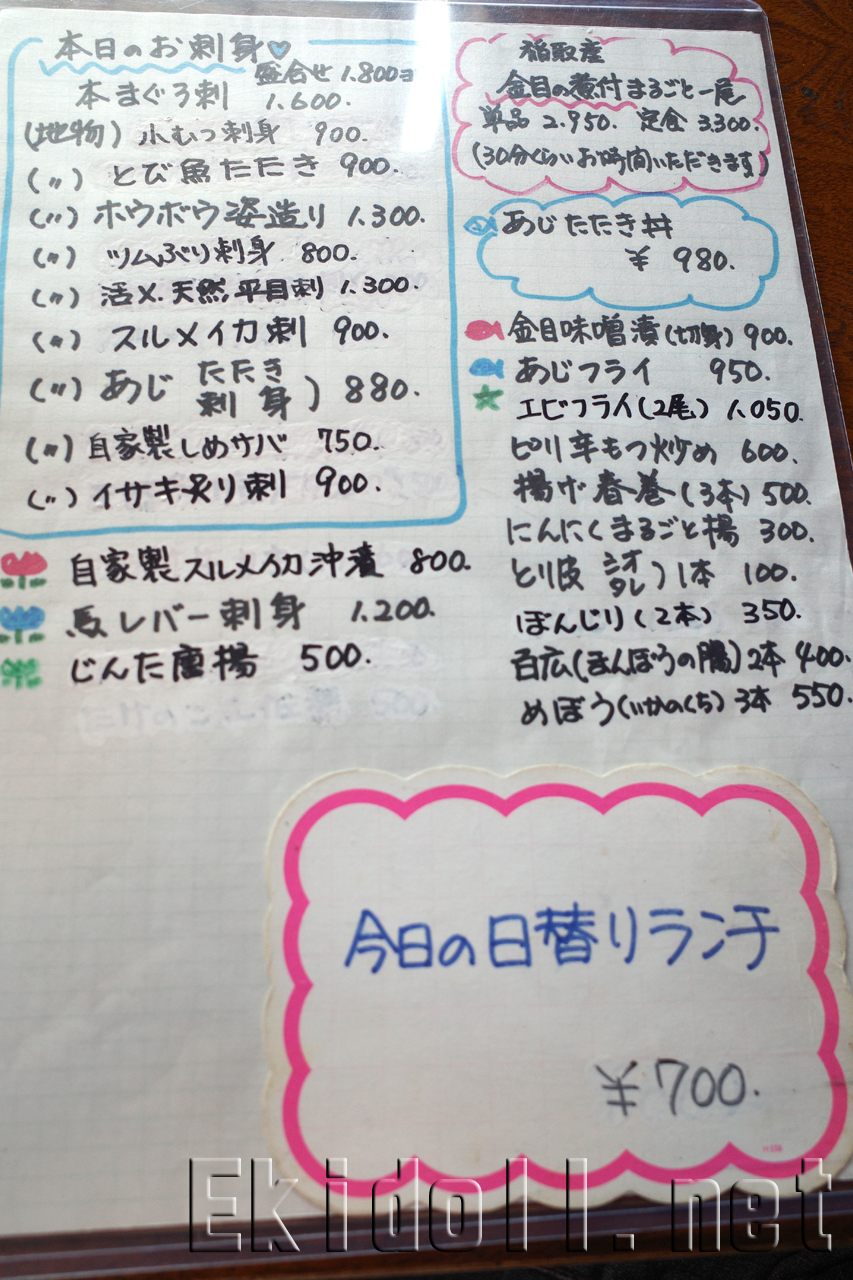 本日のお刺身♡
盛合せ 1.800ヨ
本まぐろ刺 1.600.
(地物) 小むつ刺身 900.
(〃) とび魚たたき 900.
(〃) ホウボウ姿造り 1.300.
(〃) ツムぶり刺身 800.
(〃) 活〆.天然平目刺 1.300.
(〃) スルメイカ刺 900.
(〃) あじ たたき 刺身 ) 880.
(〃) 自家製しめサバ 750.
(〃) イサキ炙り刺 900.
自家製スルメイカ沖漬 800.
馬レバー刺身 1.200.
じんた唐揚 500.
稲取産
金目の煮付まるごと一尾
単品 2.950. 定食 3.300.
(30分くらいお時間いただきます)
あじたたき丼
¥ 980.
金目味噌漬(切身) 900.
あじフライ 950.
エビフライ(2尾) 1.050.
ピリ辛もつ炒め 600.
揚げ春巻(3本) 500.
にんにくまるごと揚 300.
とり皮 シオ タレ ) 1本 100.
ぼんじり(2本) 350.
百広(まんぼうの腸) 2本 400.
めぼう(いかのくち) 3本 550.
今日の日替りランチ
¥700.
Ekidoll.net